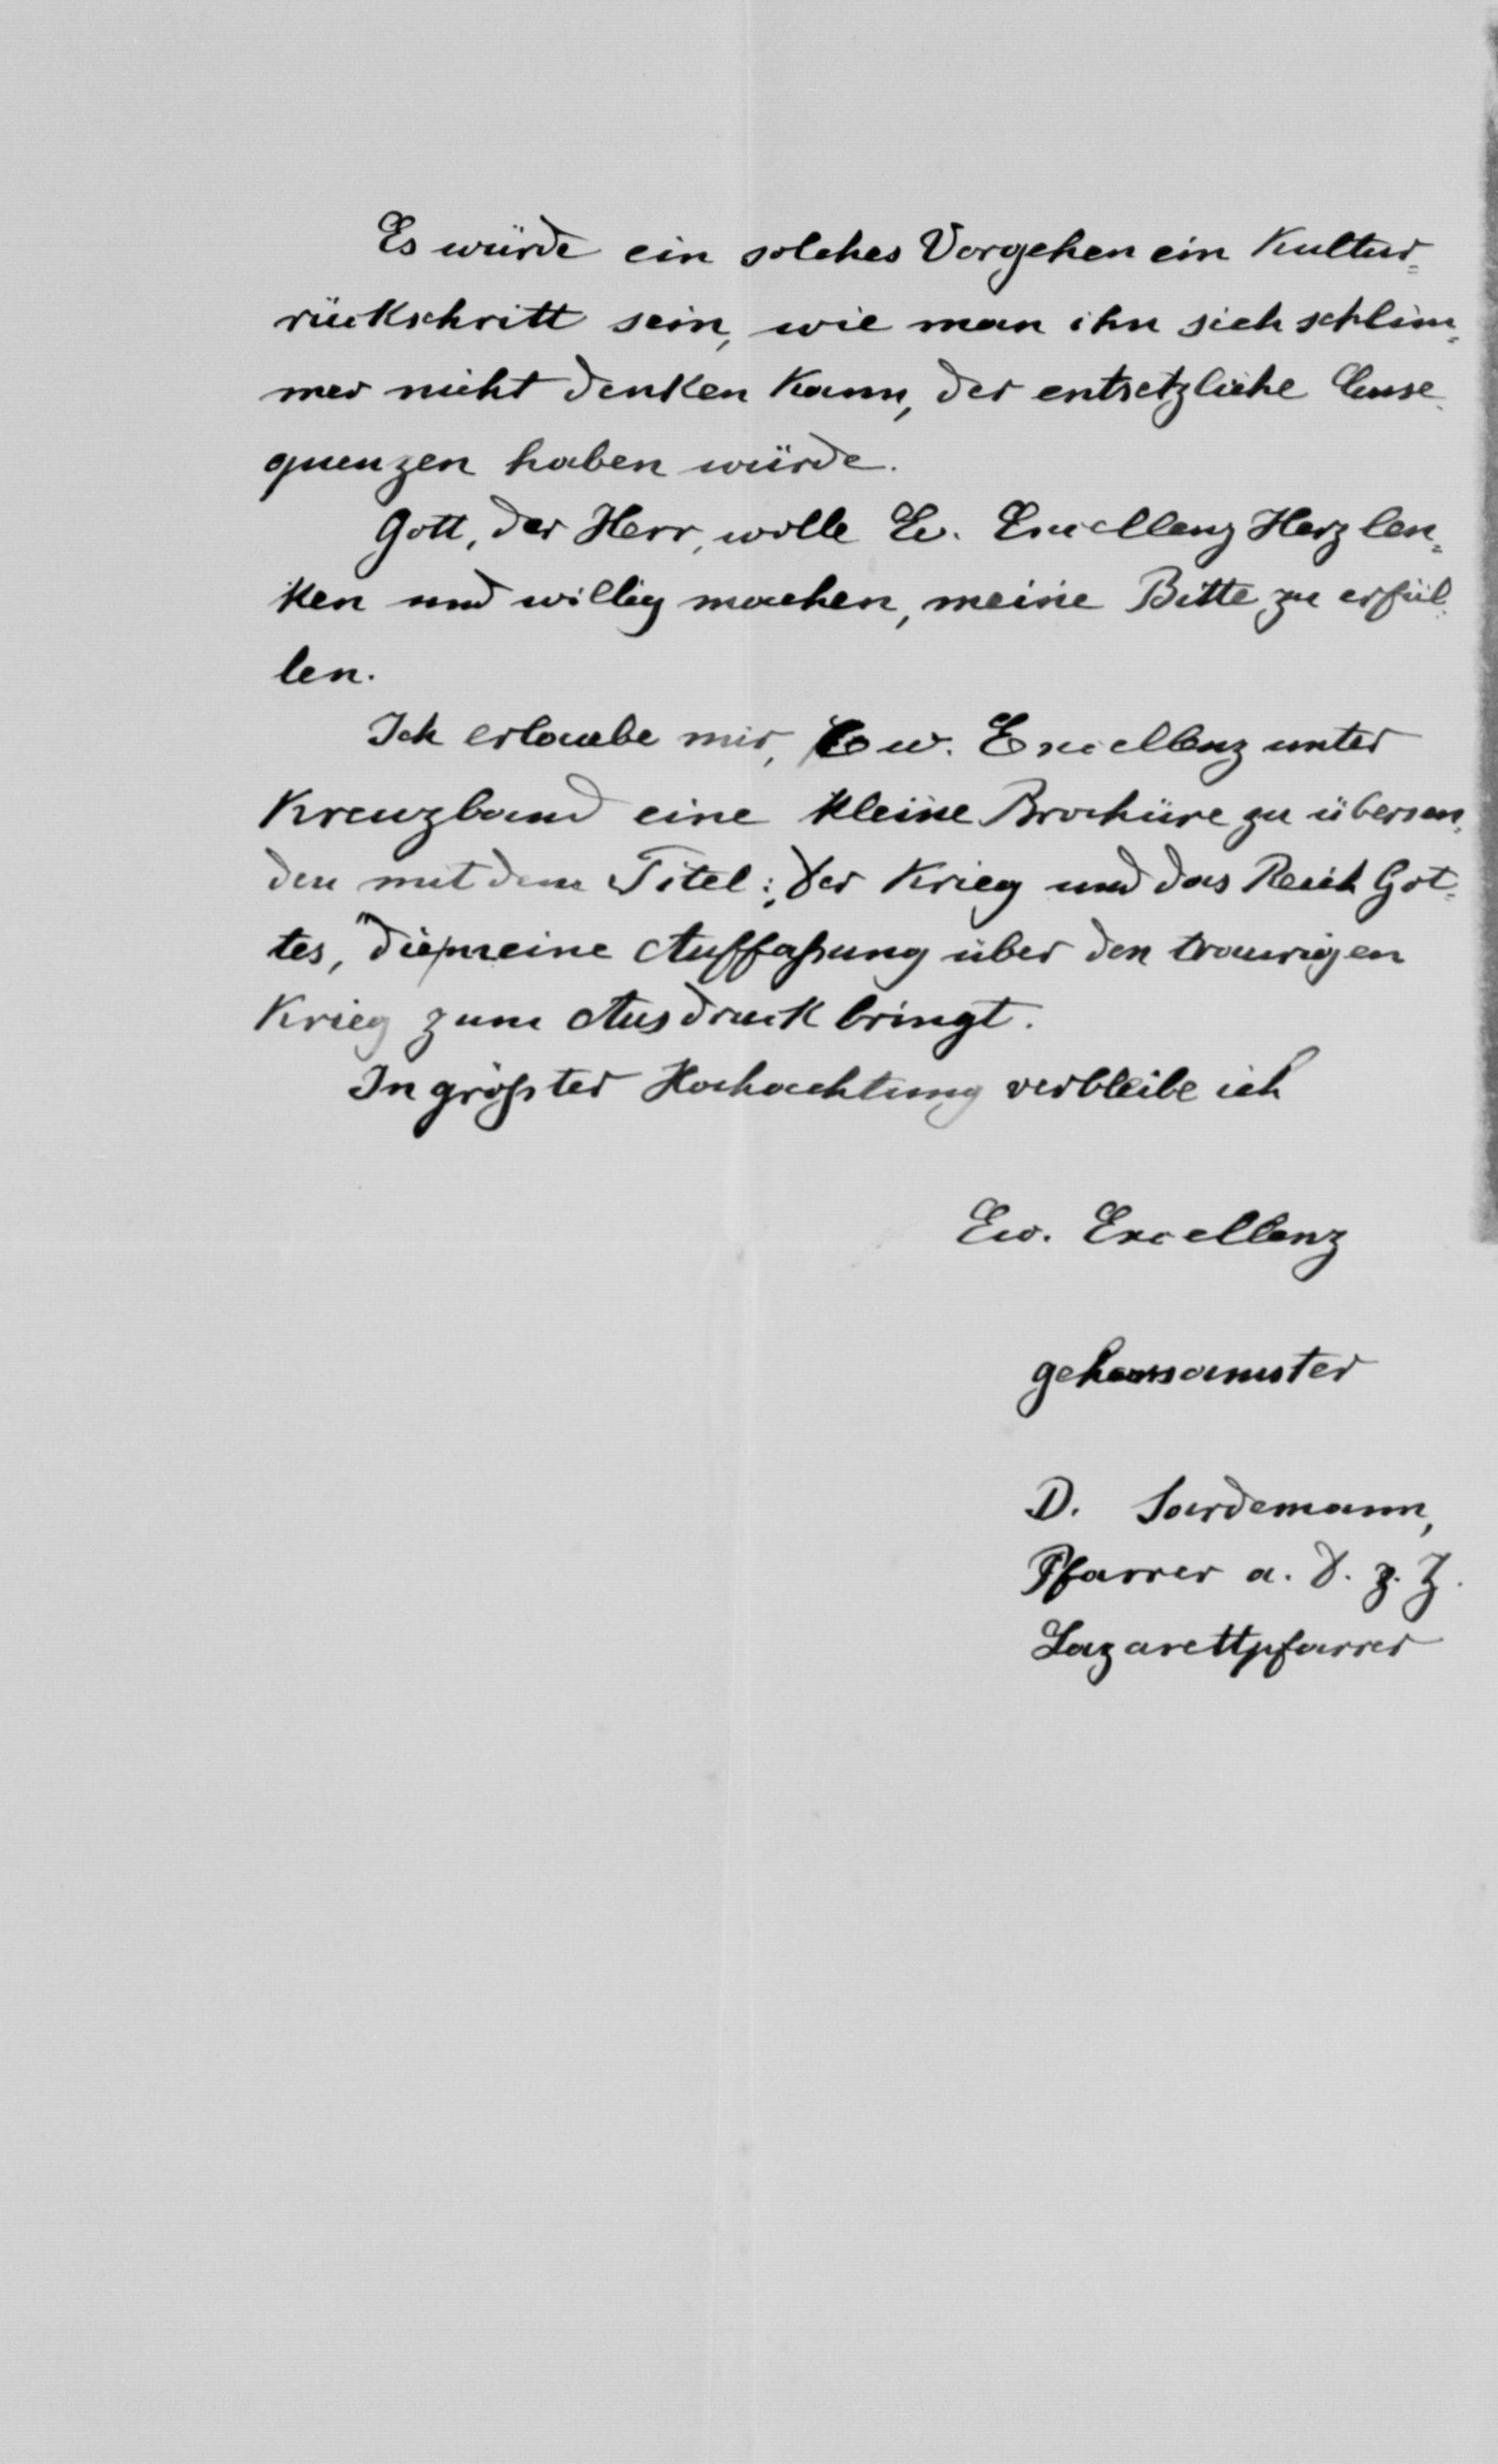 Es würde ein solches Vorgehen ein Kultur=
rückschritt sein, wie man ihn sich schlim=
mer nicht denken kann, der entsetzliche Conse=
quenzen haben würde.
Gott, der Herr, wolle Ew. Excellenz Herz len=
ken und willig machen, meine Bitte zu erfül=
len.
Ich erlaube mir, Ew. Excellenz unter
Kreuzband eine kleine Brochüre zu übersen=
den mit dem Titel: „Der Krieg und das Reich Got=
tes," die meine Auffaßung über den traurigen
Krieg zum Ausdruck bringt.
In größter Hochachtung verbleibe ich
Ew. Excellenz
gehorsamster
D. Sardemann,
Pfarrer a. D. z. Z.
Lazarettpfarrer